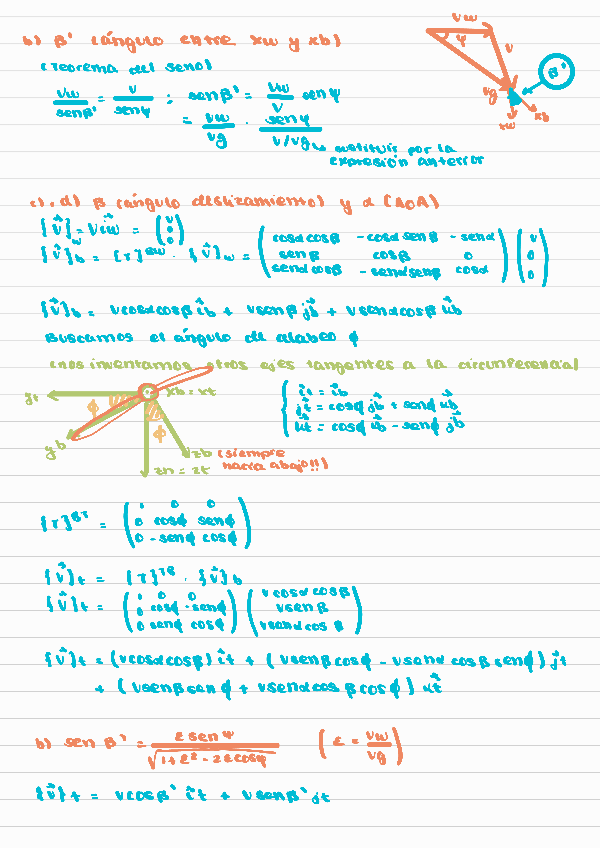 b) β' (ángulo entre xw y xb)
(Teorema del seno)
Vw/senβ' = V/senψ ; senβ' = Vw/V senψ
= Vw/Vg · senψ/(V/Vg) ↳ sustituir por la
expresión anterior
Vw
ψ
V
Vg
β'
xw
xb
c), d) β (ángulo deslizamiento) y α (AOA)
{V⃗}w = V i⃗w = (V 0 0)
{V⃗}b = [T]^BW · {V⃗}w = (cosα cosβ - cosα senβ - senα
senβ cosβ 0
senα cosβ - senα senβ cosα) (V 0 0)
{V⃗}b = V cosα cosβ i⃗b + V senβ j⃗b + V senα cosβ k⃗b
Buscamos el ángulo de alabeo ϕ
(nos inventamos otros ejes tangentes a la circunferencia)
yt
xb = xt
ϕ
yb
ϕ
zb (siempre
hacia abajo!!)
zn = zt
i⃗t = i⃗b
j⃗t = cosϕ j⃗b + senϕ k⃗b
k⃗t = cosϕ k⃗b - senϕ j⃗b
[T]^BT = (1 0 0
0 cosϕ senϕ
0 - senϕ cosϕ)
{V⃗}t = [T]^TB · {V⃗}b
{V⃗}t = (1 0 0
0 cosϕ - senϕ
0 senϕ cosϕ) (V cosα cosβ
V senβ
V senα cosβ)
{V⃗}t = (V cosα cosβ) i⃗t + (V senβ cosϕ - V senα cosβ senϕ) j⃗t
+ (V senβ senϕ + V senα cosβ cosϕ) k⃗t
b) sen β' = ε senψ / √(1 + ε² - 2ε cosψ) (ε = Vw/Vg)
{V⃗}t = V cosβ' i⃗t + V senβ' j⃗t